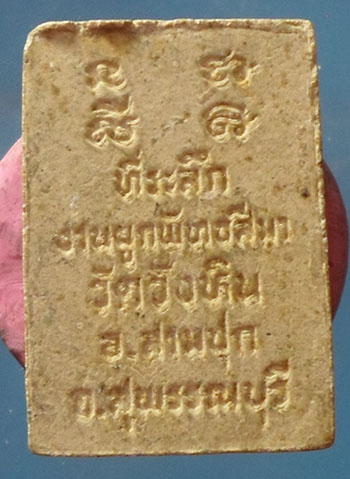 ที่ระลึก
งานผูกพัทธสีมา
วัดวังหิน
อ.สามชุก
จ.สุพรรณบุรี